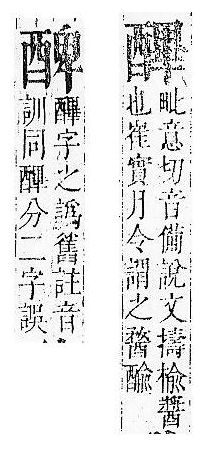 毗意切音備說文擣榆醬
也崔實月令謂之
字之譌舊註音
訓同 分二字誤